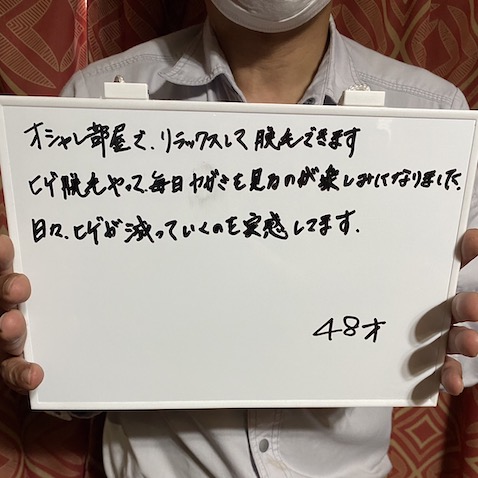 オシャレ部屋で、リラックスして脱毛できます
ヒゲ脱毛やって、毎日カガミを見るのが楽しみになりました。
日々、ヒゲが減っていくのを実感してます。
48才